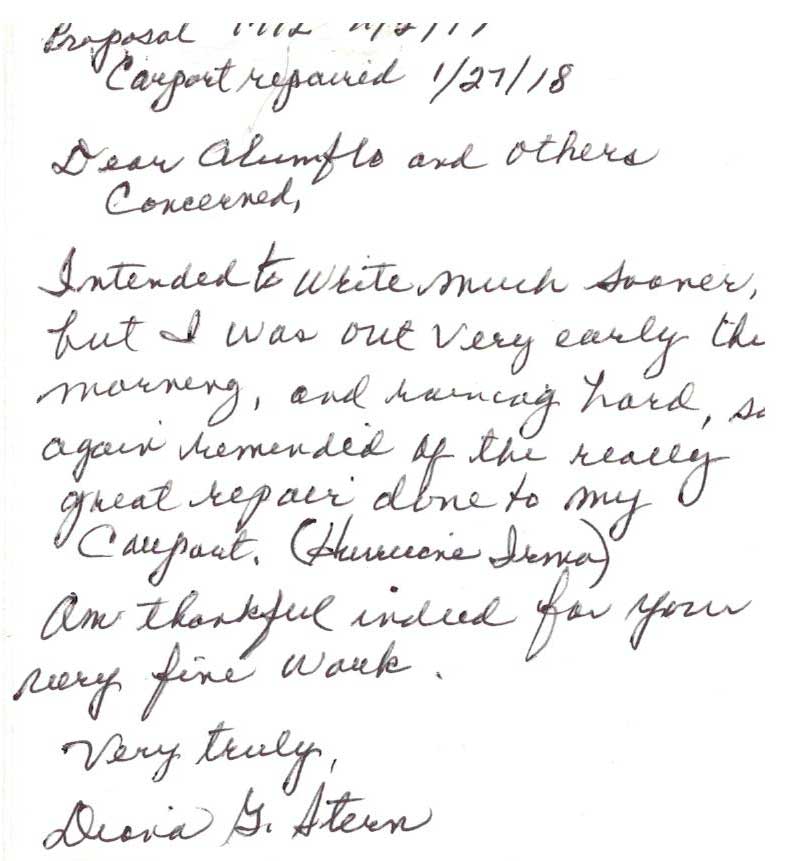 Proposal
Carport repaired 1/27/18
Dear Alumflo and others
Concerned,
Intended to write much sooner,
but I was out very early
morning, and raining hard,
again reminded of the really
great repair done to my
Carport. (Hurricane Irma)
Am thankful indeed for your
very fine work.
Very truly,
Diana G. Stern